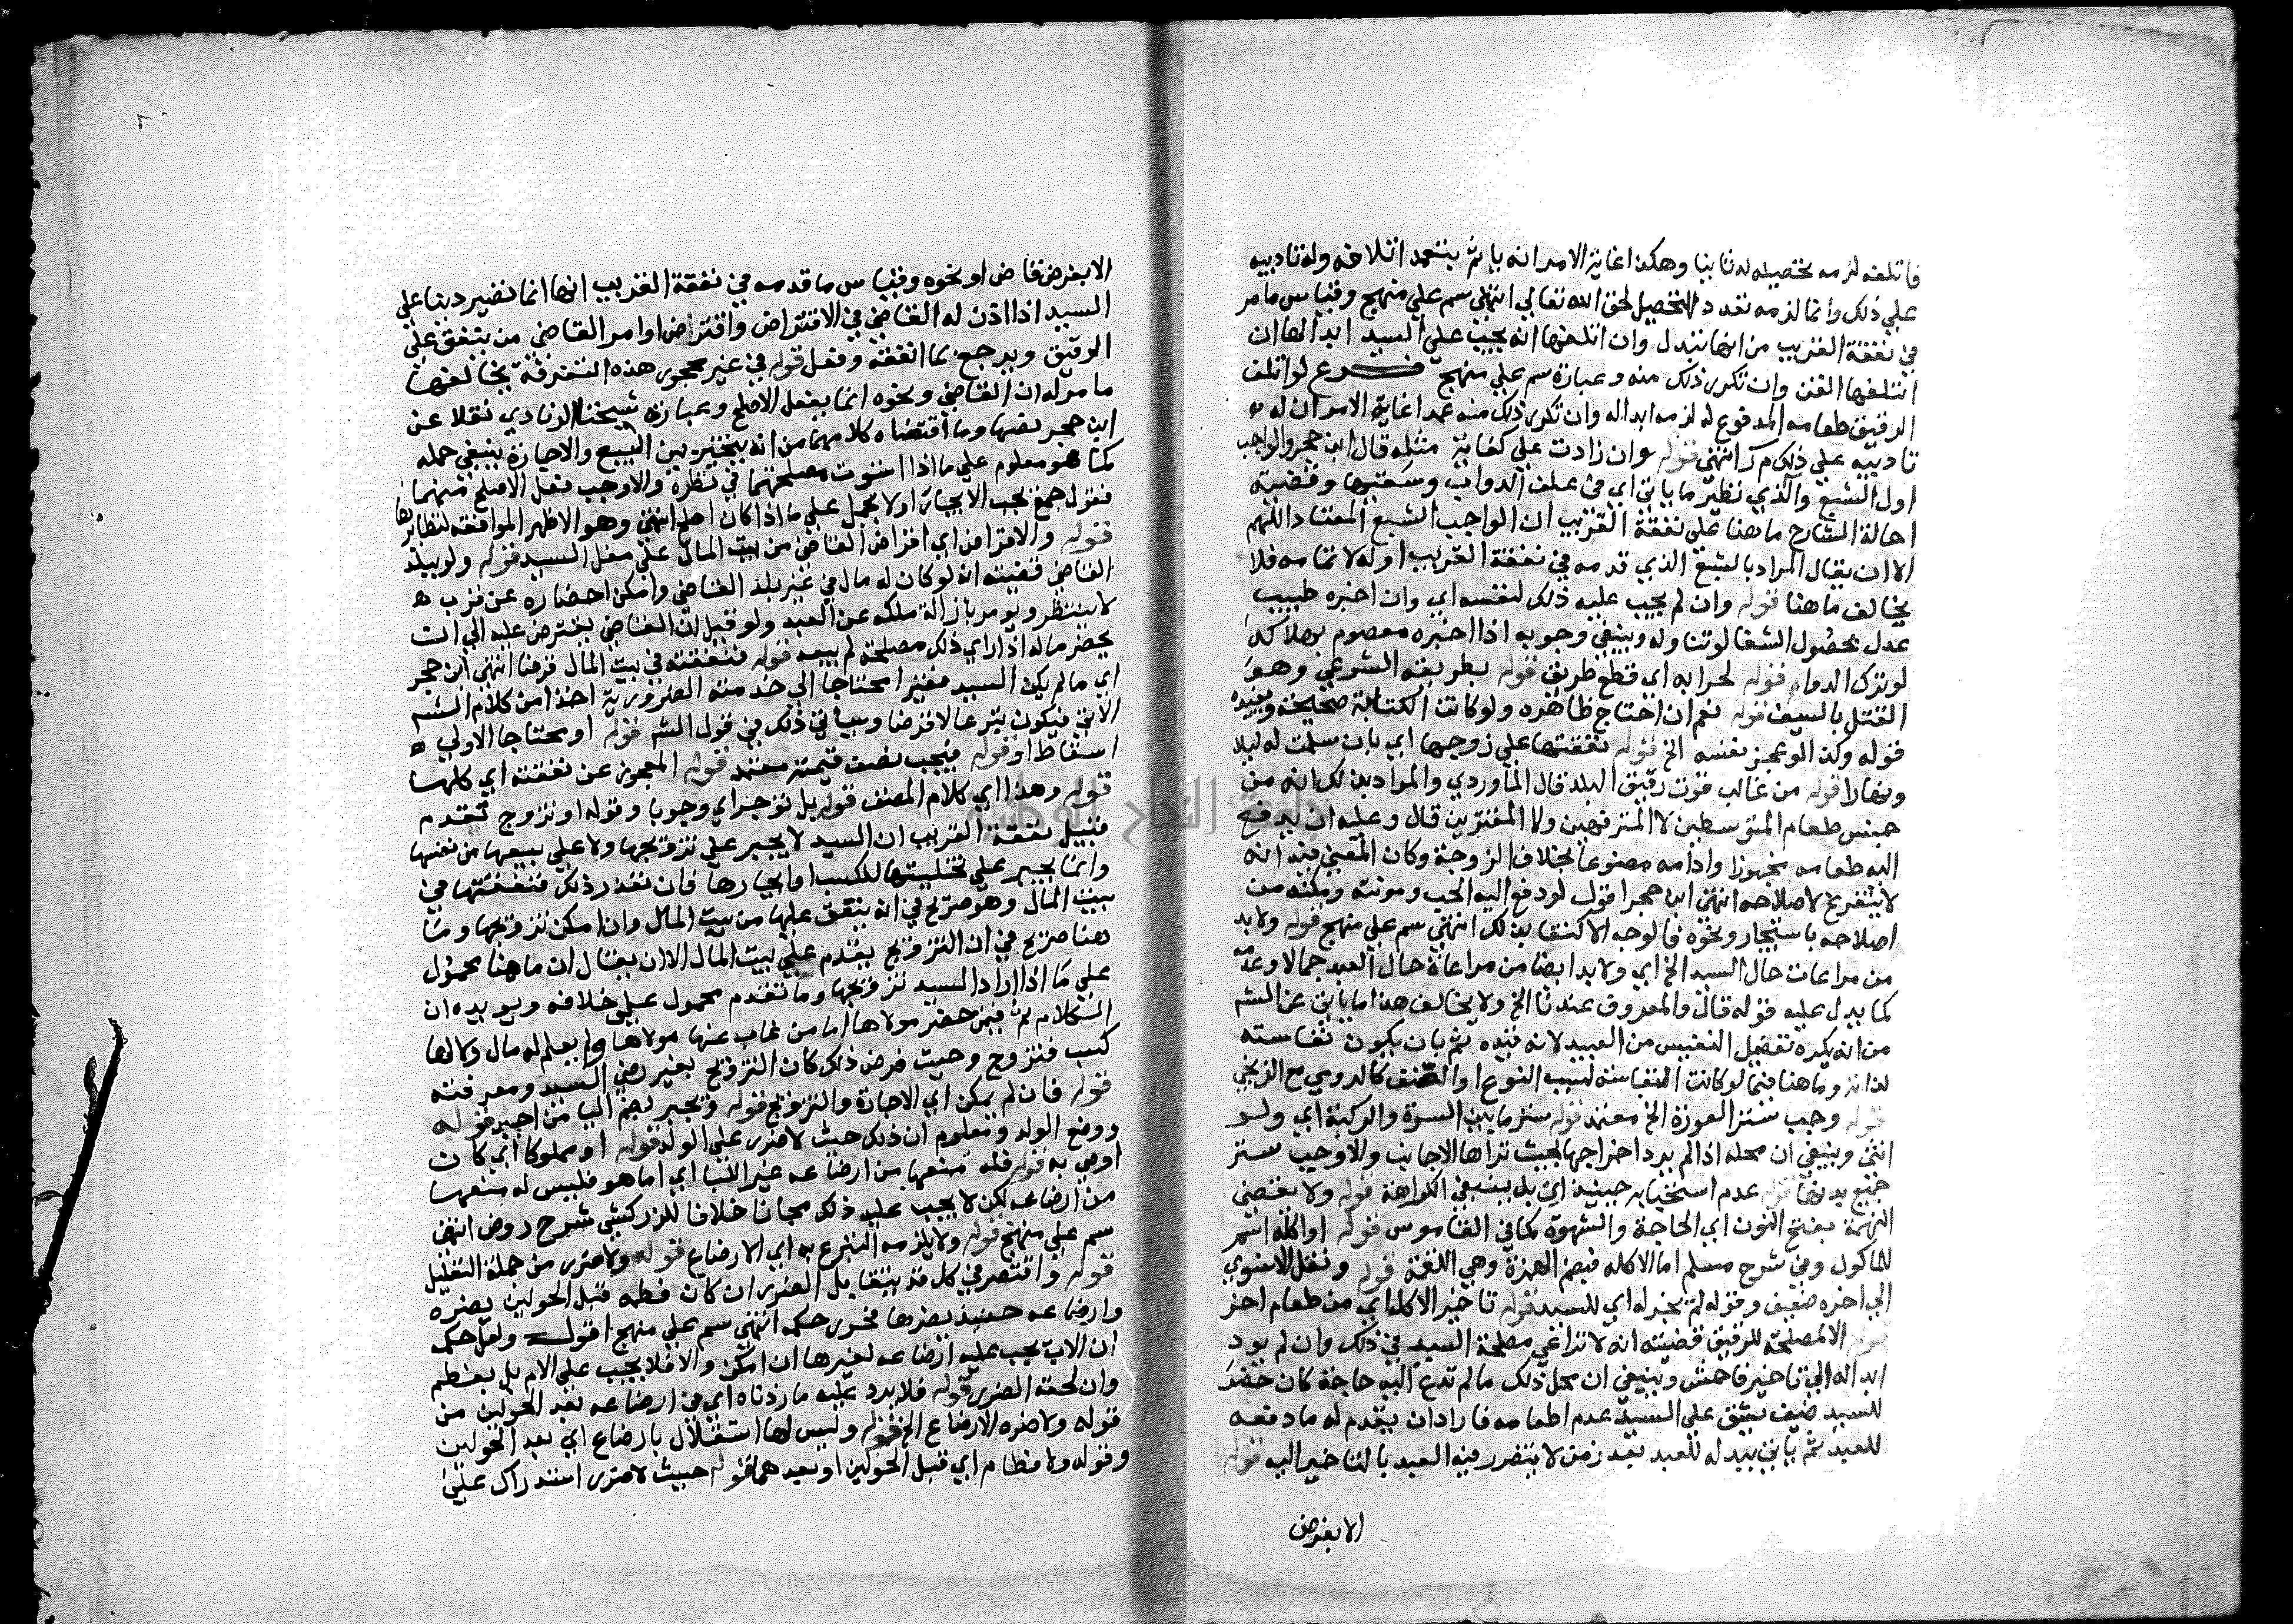 فاتلفه لزمه تحصيله له ثانيا وهكذا غاية الامر انه ياثم بتعمد اتلافه وله تاديبه
علي ذلك وانما لزمه تعدد التحصيل لحق الله تعالي انتهي سم علي منهج وقياس ما مر
في نفقة القريب من انها تبدل وان اتلفها انه يجب علي السيد ابدالها ان
اتلفها القن وان تكرر ذلك منه وعبارة سم علي منهج فرع لو اتلف
الرقيق طعامه المدفوع له لزمه ابداله وان تكرر ذلك منه عمدا غاية الامر ان له
تاديبه علي ذلك م ر انتهي قوله وان زادت علي كفاية مثله قال ابن حجر والواجب
اول الشبع والذي نظير ما ياتي اي في علف الدواب وسقيها وقضية
احالة الشارح ما هنا علي نفقة القريب ان الواجب الشبع المعتاد اللهم
الا ان يقال المراد بالشبع الذي قدمه في نفقة القريب اوله لا تمامه فلا
يخالف ما هنا قوله وان لم يجب عليه ذلك لنفسه اي وان اخبره طبيب
عدل بحصول الشفا لو تناوله وينبغي وجوبه اذا اخبره معصوم بهلاكه
لو ترك الدواء قوله لحرابه اي قطع طريق قوله بطريقه الشرعي وهو
القتل بالسيف قوله نعم ان احتاج ظاهره ولو كانت الكتابة صحيحة ويفيده
قوله وكذا لو عجز نفسه الخ قوله نفقتها علي زوجها اي بان سلمت له ليلا
ونهارا قوله من غالب قوت رقيق البلد قال الماوردي والمراد بذلك انه من
جنس طعام المتوسطين لا المترفهين ولا المقترين قال وعليه ان يدفع
اليه طعامه مخبوزا وادامه مصنوعا بخلاف الزوجة وكان المعني فيه انه
لا يتفرغ لاصلاحه انتهي ابن حجر اقول لو دفع اليه الحب ومونته ومكنه من
اصلاحه باستيجار ونحوه فالوجه الاكتفا بذلك انتهي سم علي منهج قوله ولا بد
من مراعات حال السيد الخ اي ولا بد ايضا من مراعاة حال العبد جمالا وعدمه
كما يدل عليه قوله قال والمعروف عندنا الخ ولا يخالف هذا ما ياتي عن الشم
من انه يكره تفضيل النفيس من العبيد لانه قيده ثم بان يكون نفاسته
لذاته وما هنا فيما لو كانت النفاسة لسبب النوع او الصنف كالرومي مع الزنجي
قوله وجب ستر العورة الخ معتمد قوله ستر ما بين السرة والركبة اي ولو
انثي وينبغي ان محله اذا لم يرد اخراجها بحيث تراها الاجانب والاوجب ستر
جميع بدنها قوله عدم استحبابه حينيذ اي بل ينبغي الكراهة قوله ولا يقتضي
النهمة بفتح النون اي الحاجة والشهوة كما في القاموس قوله او اكله اسم
للماكول وفي شرح مسلم اما الاكله فبضم الهمزة وهي اللقمة قوله ونقل الاسنوي
الي اخره ضعيف وقوله لم يجز له اي للسيد قوله تاخير الاكل اي من طعام اخر
قوله الا لمصلحة للرقيق قضيته انه لا تراعي مصلحة السيد في ذلك وان لم يود
ابداله الي تاخير فاحش وينبغي ان محل ذلك ما لم تدع اليه حاجة كان حضر
للسيد ضيف يشق علي السيد عدم اطعامه فاراد ان يقدم له ما دفعه
للعبد ثم ياتي ببدله للعبد بعد زمن لا يتضرر فيه العبد بالتاخير اليه قوله
الا بفرض
الا بفرض قاض او نحوه وقياس ما قدمه في نفقة القريب انها انما تصير دينا علي
السيد اذا اذن له القاضي في الاقتراض واقترض او امر القاضي من ينفق علي
الرقيق ويرجع بما انفقه وفعل قوله في غير محجور هذه التفرقة يخالفها
ما مر له ان القاضي ونحوه انما يفعل الاصلح وعبارة شيخنا الزيادي نقلا عن
ابن حجر نصها وما اقتضاه كلامهما من انه يتخير بين البيع والاجارة ينبغي حمله
كما هو معلوم علي ما اذا استوت مصلحتهما في نظره والاوجب فعل الاصلح منهما
فقول جمع يجب الايجار اولا يحمل علي ما اذا كان اصلح انتهي وهو الاظهر الموافقه لنظايرها
قوله والاقتراض اي اقتراض القاضي من بيت المال علي مغل السيد قوله ولو ببلد
القاضي قضيته انه لو كان له مال في غير بلد القاضي وامكن احضاره عن قرب
لا ينتظر ويومر بازالة ملكه عن العبد ولو قيل ان القاضي يقترض عليه الي ان
يحضر ماله اذا راي ذلك مصلحة لم يبعد قوله فنفقته في بيت المال قرضا انتهي ابن حجر
اي ما لم يكن السيد فقيرا محتاجا الي خدمته الضرورية اخذا من كلام الشم
الاتي فيكون تبرعا لا قرضا وسياتي ذلك في قول الشم قوله او محتاجا الاولي
اسقاط او قوله فيجب نصف قيمته معتمد قوله المعجوز عن نفقته اي كلها
قوله وهذا اي كلام المصنف قوله بل توجر اي وجوبا وقوله او تزوج تقدم
قبيل نفقة القريب ان السيد لا يجبر علي تزويجها ولا علي بيعها من نفسها
وانما يجبر علي تخليتها للكسب او ايجارها فان تعذر ذلك فنفقتها في
بيت المال وهو صريح في انه ينفق عليها من بيت المال وان امكن تزويجها وما
هنا صريح في ان التزويج يقدم علي بيت المال الا ان يقال ان ما هنا محمول
علي ما اذا اراد السيد تزويجها وما تقدم محمول علي خلافه ويويده ان
الكلام ثم فيمن حضر مولاها اما من غاب عنها مولاها ولم يعلم له مال ولا لها
كسب فتزوج وحيث فرض ذلك كان التزويج بغير رضي السيد ومعرفته
قوله فان لم يمكن اي الاجارة والتزويج قوله ويجبر بضم اليا من اجبر قوله
ورضع الولد ومعلوم ان ذلك حيث لا ضرر علي الولد قوله او مملوكا اي كان
اوصي به قوله فله منعها من ارضاعه غير اللبا اي اما هو فليس له منعها
من ارضاعه لكن لا يجب عليه ذلك مجانا خلافا للزركشي شرح روض انتهي
سم علي منهج قوله ولا يلزمه التبرع به اي الارضاع قوله ولا ضرر من جملة التعليل
قوله واقتصر في كل قد يتقابل الضرر ان كان فطمه قبل الحولين يضره
وارضاعه حينيذ يضرها فحرر حكمه انتهي سم علي منهج اقول ولعل حكمه
ان الاب يجب عليه ارضاعه لغيرها ان امكن والا فلا يجب علي الام بل يفطم
وان لحقه الضرر قوله فلا يرد عليه ما زدناه اي من ارضاعه بعد الحولين من
قوله ولا ضره الارضاع الخ قوله وليس لها استقلال بارضاع اي بعد الحولين
وقوله ولا فطام اي قبل الحولين او بعدهما قوله حيث لا ضرر استدراك علي